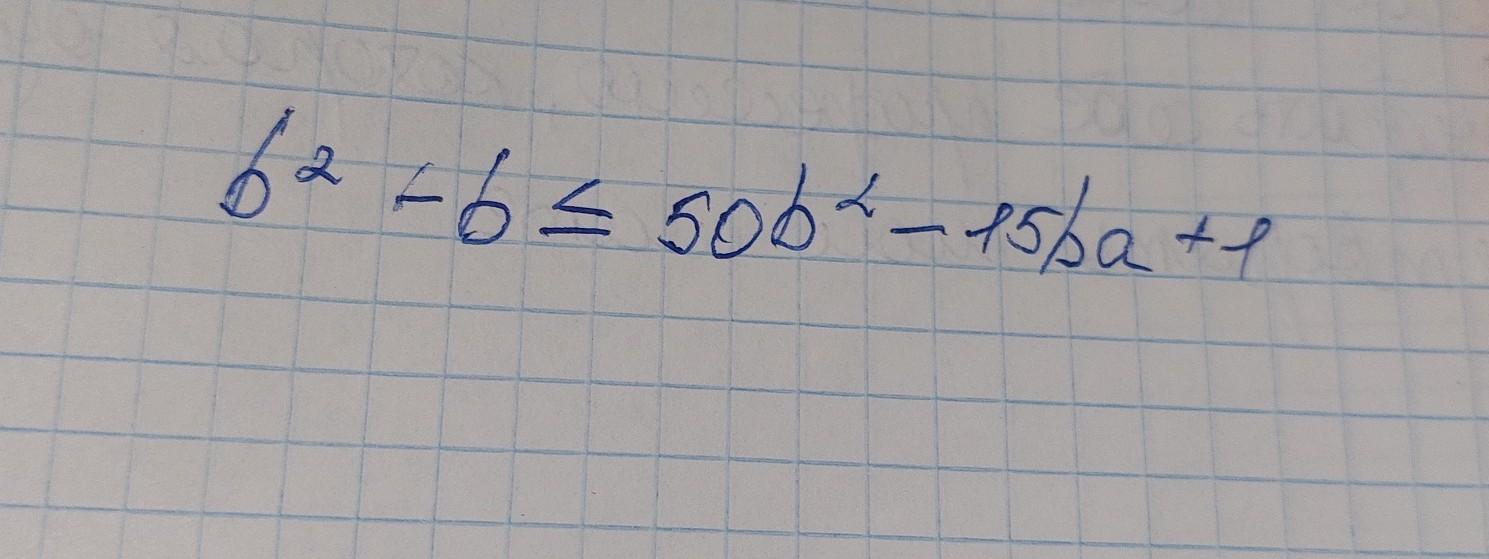 b² - b ≤ 50b² - 15ba + 1